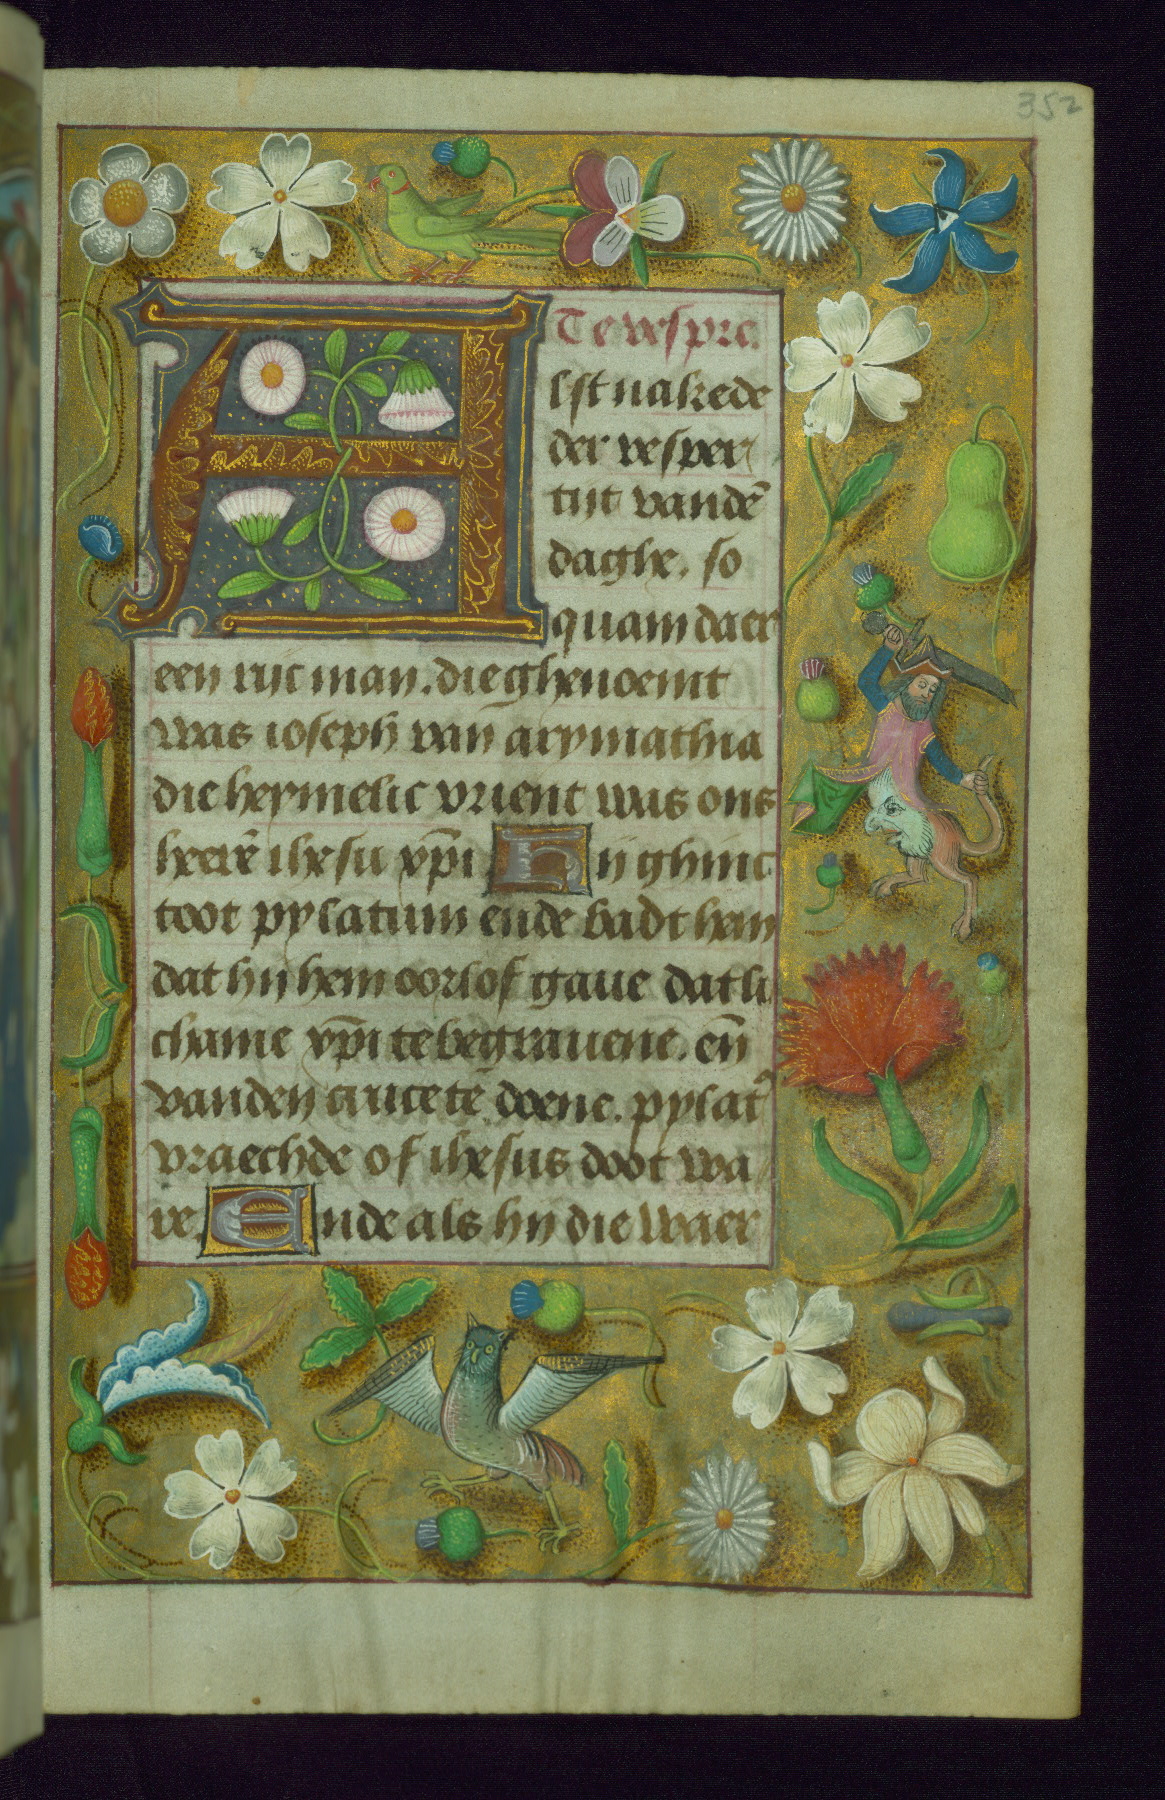 352
Te vespre.
Alst nakede
der vesper
tijt vandē
daghe. so
quam daer
een rijc man. die ghenoemt
was ioseph van arymathia
die heymelic vrient was ons
heerē ihesu xp̄i Hij ghinc
toot pylatum ende badt hem
dat hij hem oorlof gaue dat li
chame xp̄i te begrauene. eñ
vanden cruce te doene. pylatꝰ
vraechde of ihesus doot wa
re. Ende als hij die waer